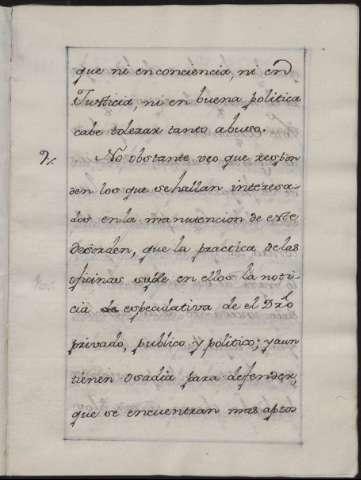 que ni en conciencia, ni en
Justicia, ni en buena politica
cabe tolerar tanto abuso.
9,, No obstante veo que respon
den los que se hallan interesa-
dos en la manutencion de este
desorden, que la practica de las
oficinas suple en ellos la noti-
cia especulativa de el Dr̃o
privado, publico y politico; y aun
tienen osadia para defender,
que se encuentran mas aptos